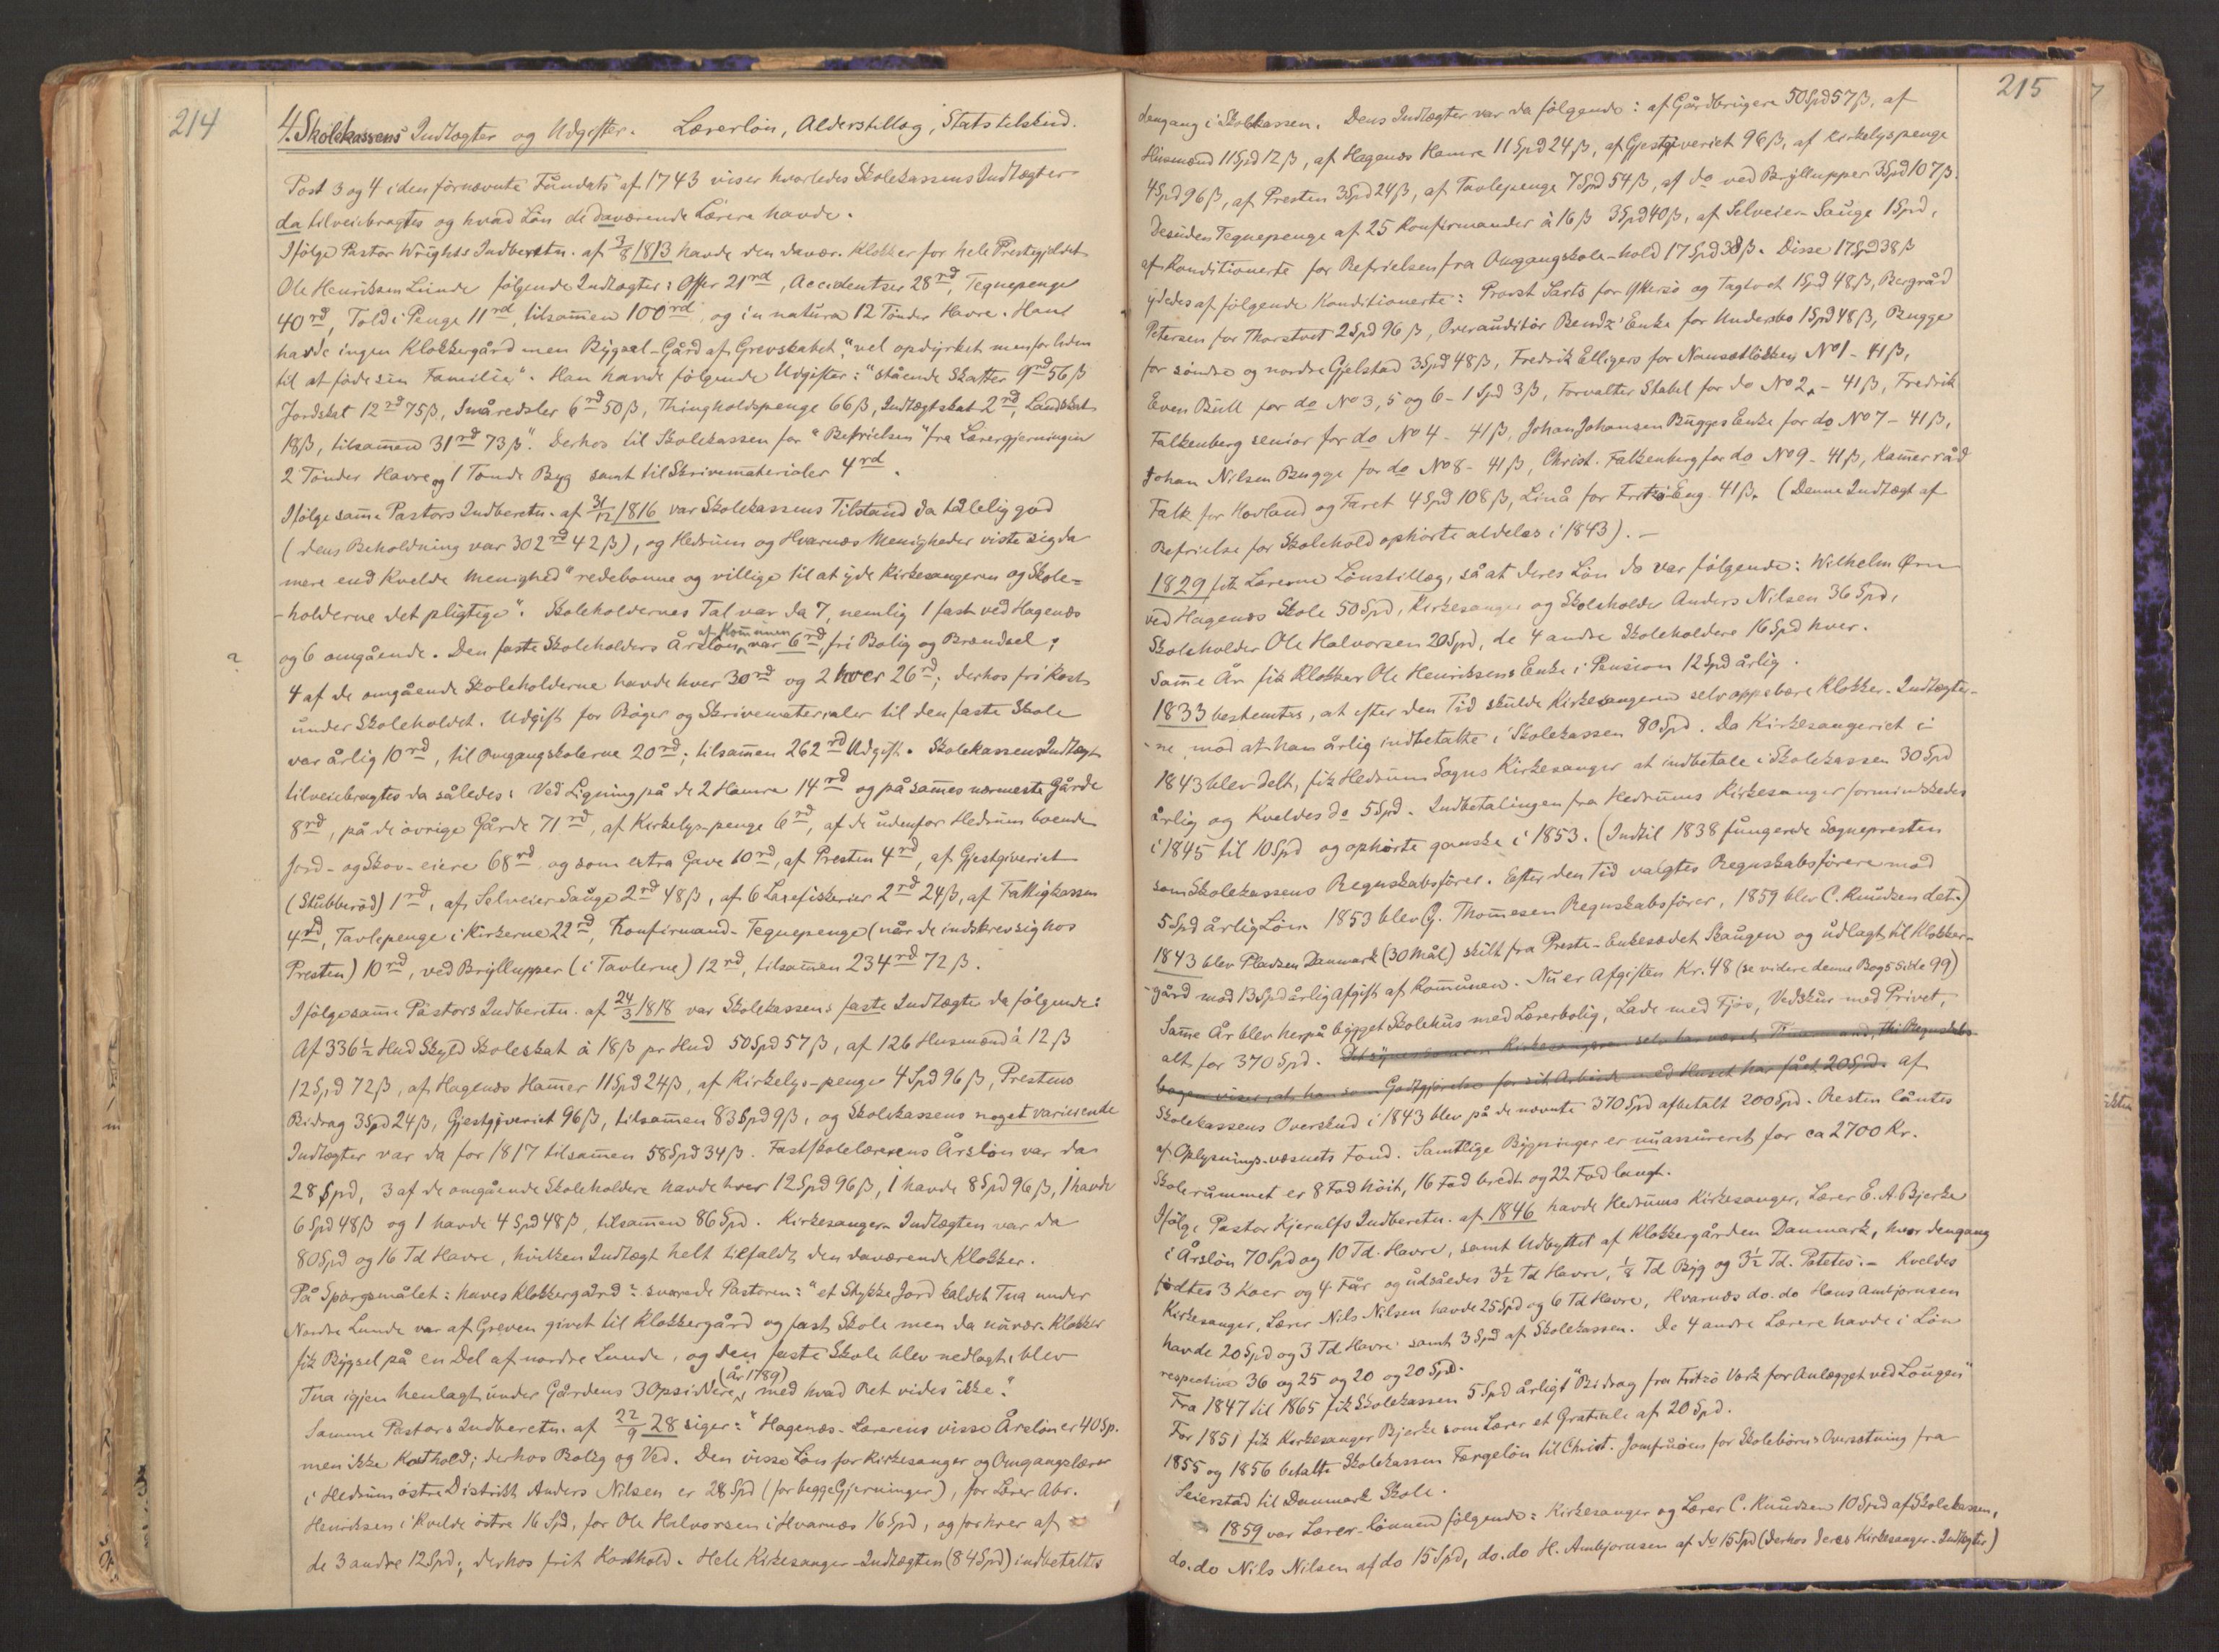 214
4. Skolekassens Indtægter og Udgifter. Lærerløn, Alderstillæg, Statstilskud.
Post 3 og 4 i den förnævnte "Fundats" af 1743 viser hvorledes Skolekassens Indtægter
da tilveiebragtes og hvad Lön de daværende Lærere havde.
Ifölge Pastor Wrights Indberetn. af 3/8 1813 havde den davær. Klokker for hele Prestegjeldet
Ole Henriksen Lunde følgende Indtægter: Offer 21 rd, Accidentser 28 rd, Tegnepenge
40 rd, Told i Penge 11 rd, tilsamen 100 rd, og in natura 12 Tönder Havre. Han
havde ingen Klokkergård men Bygsel-Gård af Grevskabet, "vel opdyrket men for liden
til at föde sin Familie". Han havde følgende Udgifter: "stående Skatter 9 rd 56 ß
Jordskat 12 rd 75 ß, Småredsler 6 rd 50 ß, Thingholdspenge 66 ß, Indtægtskat 2 rd, Landskat
18 ß, tilsamen 31 rd 73 ß". Derhos til Skolekassen for "Befrielsen" fra Lærergjerningen
2 Tönder Havre og 1 Tönde Byg samt til Skrivematerialer 4 rd.
Ifölge same Pastors Indberetn. af 31/12 1816 var Skolekassens Tilstand da tålelig god
(dens Beholdning var 302 rd 42 ß), og Hedrum og Hvarnæs Menigheder viste sig da
mere end Kvelde Menighed "redebonne og villige til at yde Kirkesangeren og Skole=
-holderne det pligtige". Skoleholdernes Tal var da 7, nemlig 1 fast ved Hagenæs
og 6 omgående. Den faste Skoleholders Årslön af Komunen var 6 rd, fri Bolig og Brændsel;
?
4 af de omgående Skoleholderne havde hver 30 rd og 2 hver 26 rd; derhos fri Kost
under Skoleholdet. Udgift for Böger og Skrivematerialer til den faste Skole
var årlig 10 rd, til Omgangskolerne 20 rd; tilsamen 262 rd Udgift. Skolekassens Indtægt
tilveiebragtes da således: Ved Ligning på de 2 Hamre 14 rd og på sames nærmeste Gårde
8 rd, på de övrige Gårde 71 rd, af Kirkelys-penge 6 rd, af de udenfor Hedrum boende
Jord- og Skov-eiere 68 rd og som extra Gave 10 rd, af Presten 4 rd, af Gjestgiveriet
(Stubberöd) 1 rd, af Selveier-Sauge 2 rd 48 ß, af 6 Laxefiskerier 2 rd 24 ß, af Fattigkassen
4 rd, Tavlepenge i Kirkerne 22 rd, Konfirmand-Tegnepenge (når de indskrev sig hos
Presten) 10 rd, ved Bryllupper (i Tavlerne) 12 rd, tilsamen 234 rd 72 ß.
Ifölge same Pastors Indberetn. af 24/3 1818 var Skolekassens faste Indtægter da følgende:
Af 336 1/2 Hud Skyld Skoleskat à 18 ß pr Hud 50 Spd 57 ß, af 126 Husmænd à 12 ß
12 Spd 72 ß, af Hagenæs Hamer 11 Spd 24 ß, af Kirkelys-penge 4 Spd 96 ß, Prestens
Bidrag 3 Spd 24 ß, Gjestgiveriet 96 ß, tilsamen 83 Spd 9 ß, og Skolekassens noget varierende
Indtægter var da for 1817 tilsamen 58 Spd 34 ß. Fastskolelærerens Årslön var da
28 Spd, 3 af de omgående Skoleholdere havde hver 12 Spd 96 ß, 1 havde 8 Spd 96 ß, 1 havde
6 Spd 48 ß og 1 havde 4 Spd 48 ß, tilsamen 86 Spd. Kirkesanger-Indtægten var da
80 Spd og 16 Td Havre, hvilken Indtægt helt tilfaldt den daværende Klokker.
På Spörgsmålet: haves Klokkergård? svarede Pastoren: "et Stykke Jord kaldet Tua under
Nordre Lunde var af Greven givet til Klokkergård og fast Skole men da nuvær. Klokker
fik Bygsel på en Del af nordre Lunde, og den faste Skole blev nedlagt, blev
Tua igjen henlagt under Gårdens 3 Opsiddere (År 1789), med hvad Ret vides ikke".
Samme Pastors Indberetn. af 22/9 28 siger: "Hagenæs-Lærerens visse Årslön er 40 Sp.
men ikke Kosthold; derhos Bolig og Ved. Den visse Lön for Kirkesanger og Omgangslærer
i Hedrum östre Distrikt Anders Nilsen er 28 Spd (for begge Gjerninger), for Lærer Abr.
Henriksen i Kvelde östre 16 Spd, for Ole Halvorsen i Hvarnæs 16 Spd, og for hver af
de 3 andre 12 Spd; derhos frit Kosthold. Hele Kirkesanger-Indtægten (84 Spd) indbetaltes
215
dengang i Skolekassen. Dens Indtægter var da følgende: af Gårdbrugere 50 Spd 57 ß, af
Husmænd 11 Spd 12 ß, af Hagenæs Hamre 11 Spd 24 ß, af Gjestgiveriet 96 ß, af Kirkelyspenge
4 Spd 96 ß, af Presten 3 Spd 24 ß, af Tavlepenge 7 Spd 54 ß, af do ved Bryllupper 3 Spd 107 ß.
desuden Tegnepenge af 25 Konfirmander à 16 ß 3 Spd 40 ß, af Selveier-Sauge 1 Spd,
af Konditionerte for Befrielsen fra Omgangskole-hold 17 Spd 38 ß. Disse 17 Spd 38 ß
ydedes af følgende Konditionerte: Provst Sarts for Økersö og Tagtvet 1 Spd 48 ß, Bergråd
Petersen for Thorstvet 2 Spd 96 ß, Overauditör Bendz' Enke for Undersbo 1 Spd 48 ß, Bugge
for söndre og nordre Gjelstad 3 Spd 48 ß, Fredrik Elligers for Nansetlökken No 1 - 41 ß,
Even Bull for do No 3, 5 og 6 - 1 Spd 3 ß, Forvalter Stabel for do No 2, - 41 ß, Fredrik
Falkenberg senior for do No 4 - 41 ß, Johan Johansen Bugges Enke for do No 7 - 41 ß,
Johan Nilsen Bugge for do No 8 - 41 ß, Christ. Falkenberg for do No 9 - 41 ß, Kamerråd
Falk for Hovland og Faret 4 Spd 108 ß, Linå for Fritzö Eng 41 ß. (Denne Indtægt af
Befrielse for Skolehold ophörte aldeles i 1843). -
1829 fik Lærerne Lönstillæg, så at deres Lön da var følgende: Wilhelm Ørn
ved Hagenæs Skole 50 Spd, Kirkesanger og Skoleholder Anders Nilsen 36 Spd,
Skoleholder Ole Halvorsen 20 Spd, de 4 andre Skoleholdere 16 Spd hver.
Same År fik Klokker Ole Henriksens Enke i Pension 12 Spd årlig.
1833 bestemtes, at efter den Tid skulde Kirkesangeren selv oppebære Klokker-Indtægter-
-ne mod at han årlig indbetalte i Skolekassen 80 Spd. Da Kirkesangeriet i
1843 blev delt, fik Hedrum Sogns Kirkesanger at indbetale i Skolekassen 30 Spd
årlig og Kveldes do 5 Spd. Indbetalingen fra Hedrums Kirkesanger formindskedes
i 1845 til 10 Spd og ophörte ganske i 1853. (Indtil 1838 fungerede Sognepresten
som Skolekassens Regnskabsförer. Efter den Tid valgtes Regnskabsförere mod
5 Spd årlig Lön. 1853 blev G. Thomesen Regnskabsförer, 1859 blev C. Knudsen det.)
1843 blev Pladsen Danmark (30 Mål) skilt fra Preste-Enkesædet Skaugen og udlagt til Klokker-
-gård mod 13 Spd årlig Afgift af Komunen. Nu er Afgiften Kr. 48 (se videre denne Bogs Side 99)
Same År blev herpå bygget Skolehus med Lærerbolig, Lade med Fjös, Vedskur med Privet,
alt for 370 Spd. Det synes som Kirkesangeren selv har været Tömermand, thi Regnskabs-
bogen viser, at han som Godtgjörelse for sit Arbeide med Huset har fået 20 Spd. af
Skolekassens Overskud i 1843 blev på de nævnte 370 Spd afbetalt 200 Spd. Resten låntes
af Oplysnings-væsnets Fond. Samtlige Bygninger er nu assureret for ca 2700 Kr.
Skolerummet er 8 Fod höit, 16 Fod bredt og 22 Fod langt.
Ifölge Pastor Kjerulfs Indberetn. af 1846 havde Hedrums Kirkesanger, Lærer E. A. Bjerke
i Årslön 70 Spd og 10 Td. Havre, samt Udbyttet af Klokkergården Danmark, hvor dengang
födtes 3 Koer og 4 Får og udsåedes 3 1/2 Td Havre, 1/8 Td Byg og 3 1/2 Td. Potetes. - Kveldes
Kirkesanger, Lærer Nils Nilsen havde 25 Spd og 6 Td Havre, Hvarnæs do. do Hans Ambjørnsen
havde 20 Spd og 3 Td Havre samt 3 Spd af Skolekassen. De 4 andre Lærere havde i Lön
respective 36 og 25 og 20 og 20 Spd.
Fra 1847 til 1865 fik Skolekassen 5 Spd årligt "Bidrag fra Fritzö Verk for Anlægget ved Lougen"
For 1851 fik Kirkesanger Bjerke som Lærer et Gratiale af 20 Spd.
1855 og 1856 betalte Skolekassen Færgelön til Christ. Jomfruöen for Skolebörns Oversætning fra
Seierstad til Danmark Skole.
1859 var Lærer-lönnen følgende: Kirkesanger og Lærer C. Knudsen 10 Spd af Skolekassen,
do. do Nils Nilsen af do 15 Spd, do. do H. Ambjørnsen af do 15 Spd (derhos deres Kirkesanger-Indtægter)